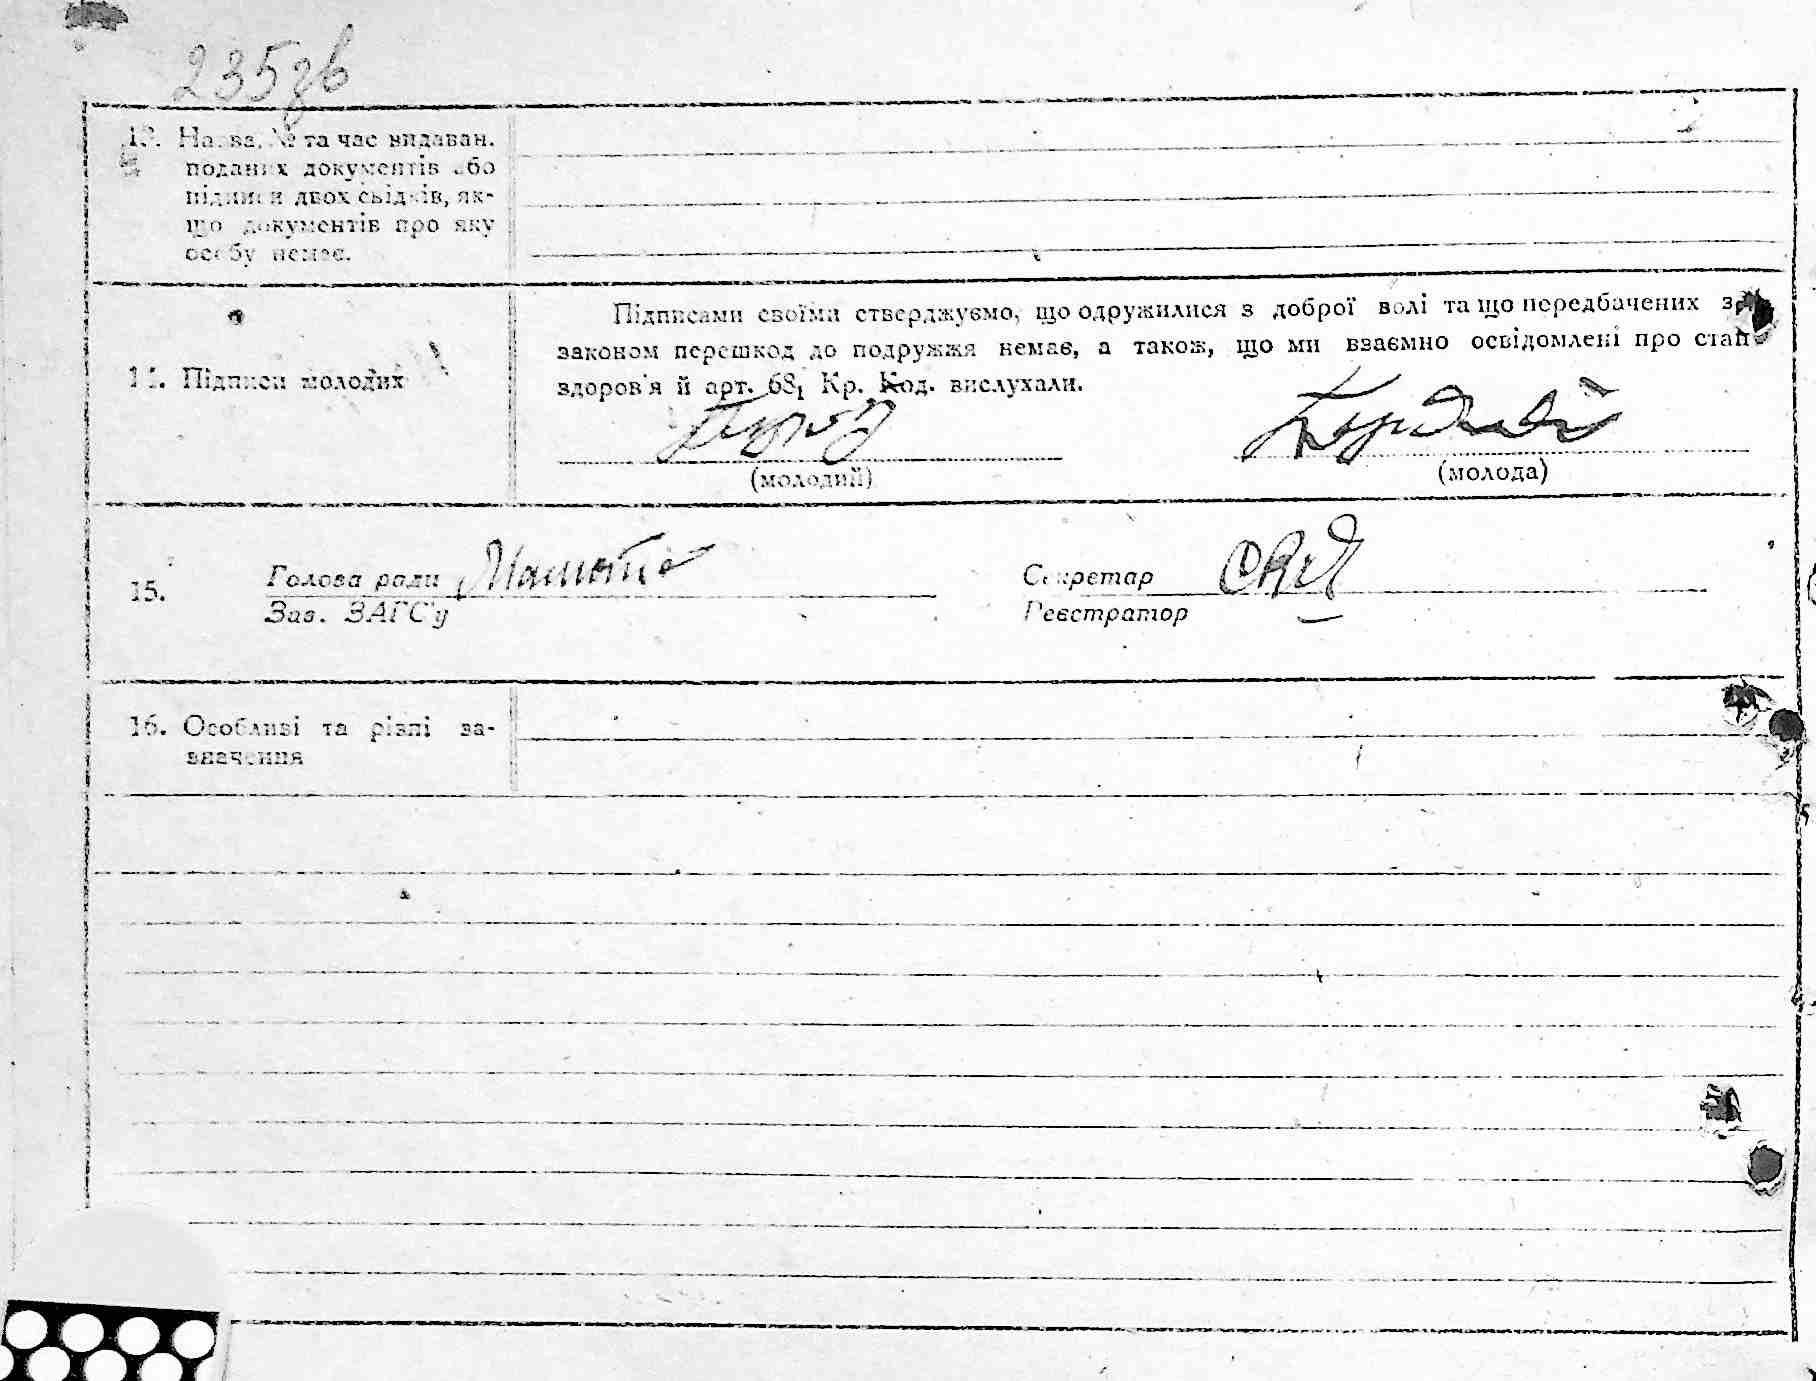 235зв
13. Назва, № та час видаван.
поданих документів або
підписи двох свідків, як-
що документів про яку
особу немає.
Підписами своїми стверджуємо, що одружилися з доброї волі та що передбачених за
законом перешкод до подружжя немає, а також, що ми взаємно освідомлені про стан
14. Підписи молодих
здоров'я й арт. 68₁ Кр. Код. вислухали.
(молодий)
(молода)
15.
Голова ради
Секретар
Зав. ЗАГС'у
Реєстратор
16. Особливі та різні за-
значення